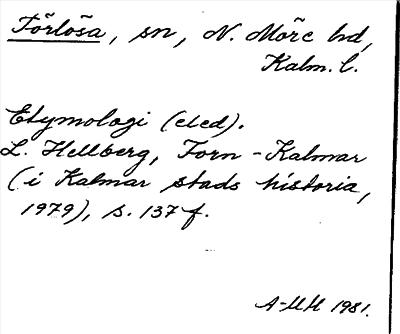 Förlösa, sn, N. Möre hd,
Kalm. l.
Etymologi (eled).
L. Hellberg, Forn-Kalmar
(i Kalmar stads historia,
1979), s. 137 f.
A-MH 1981.